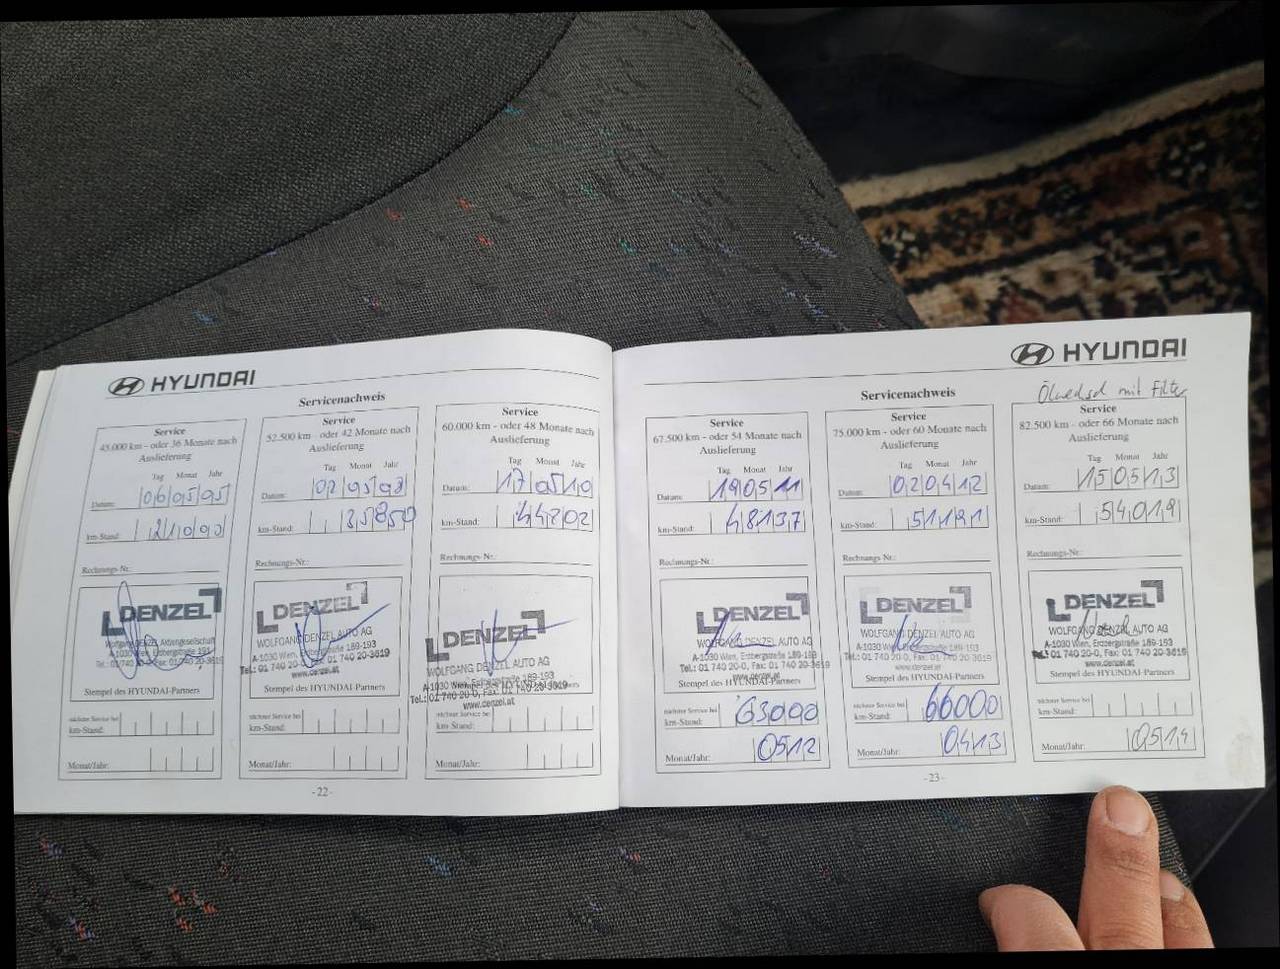 HYUNDAI
Servicenachweis
Service
45.000 km - oder 36 Monate nach
Auslieferung
Tag Monat Jahr
Datum:
km-Stand:
Rechnungs-Nr.:
DENZEL
Wolfgang DENZEL Aktiengesellschaft
A-1030 Wien, Erdbergstraße 191
Stempel des HYUNDAI-Partners
nächster Service bei
km-Stand:
Monat/Jahr:
Service
52.500 km - oder 42 Monate nach
Auslieferung
Tag Monat Jahr
Datum:
km-Stand: 35850
Rechnungs-Nr.:
DENZEL
WOLFGANG DENZEL AUTO AG
A-1030 Wien, Erdbergstraße 189-193
Tel.: 01 740 20-0, Fax: 01 740 20-3619
www.denzel.at
Stempel des HYUNDAI-Partners
nächster Service bei
km-Stand:
Monat/Jahr:
Service
60.000 km - oder 48 Monate nach
Auslieferung
Tag Monat Jahr
Datum: 170510
km-Stand: 44202
Rechnungs-Nr.:
DENZEL
WOLFGANG DENZEL AUTO AG
A-1030 Wien, Erdbergstraße 189-193
Tel.: 01 740 20-0, Fax: 01 740 20-3619
www.denzel.at
nächster Service bei
km-Stand:
Monat/Jahr:
-22-
HYUNDAI
Servicenachweis
mit Filter
Service
67.500 km - oder 54 Monate nach
Auslieferung
Tag Monat Jahr
Datum: 190511
km-Stand: 48137
Rechnungs-Nr.:
DENZEL
WOLFGANG DENZEL AUTO AG
A-1030 Wien, Erdbergstraße 189-193
Tel.: 01 740 20-0, Fax: 01 740 20-3619
www.denzel.at
Stempel des HYUNDAI-Partners
nächster Service bei
km-Stand: 63000
Monat/Jahr: 0512
Service
75.000 km - oder 60 Monate nach
Auslieferung
Tag Monat Jahr
Datum: 020412
km-Stand: 51191
Rechnungs-Nr.:
DENZEL
WOLFGANG DENZEL AUTO AG
A-1030 Wien, Erdbergstraße 189-193
Tel.: 01 740 20-0, Fax: 01 740 20-3619
www.denzel.at
Stempel des HYUNDAI-Partners
nächster Service bei
km-Stand: 66000
Monat/Jahr: 0413
Service
82.500 km - oder 66 Monate nach
Auslieferung
Tag Monat Jahr
Datum: 150513
km-Stand: 54019
Rechnungs-Nr.:
DENZEL
WOLFGANG DENZEL AUTO AG
A-1030 Wien, Erdbergstraße 189-193
Tel.: 01 740 20-0, Fax: 01 740 20-3619
www.denzel.at
Stempel des HYUNDAI-Partners
nächster Service bei
km-Stand:
Monat/Jahr: 0514
-23-